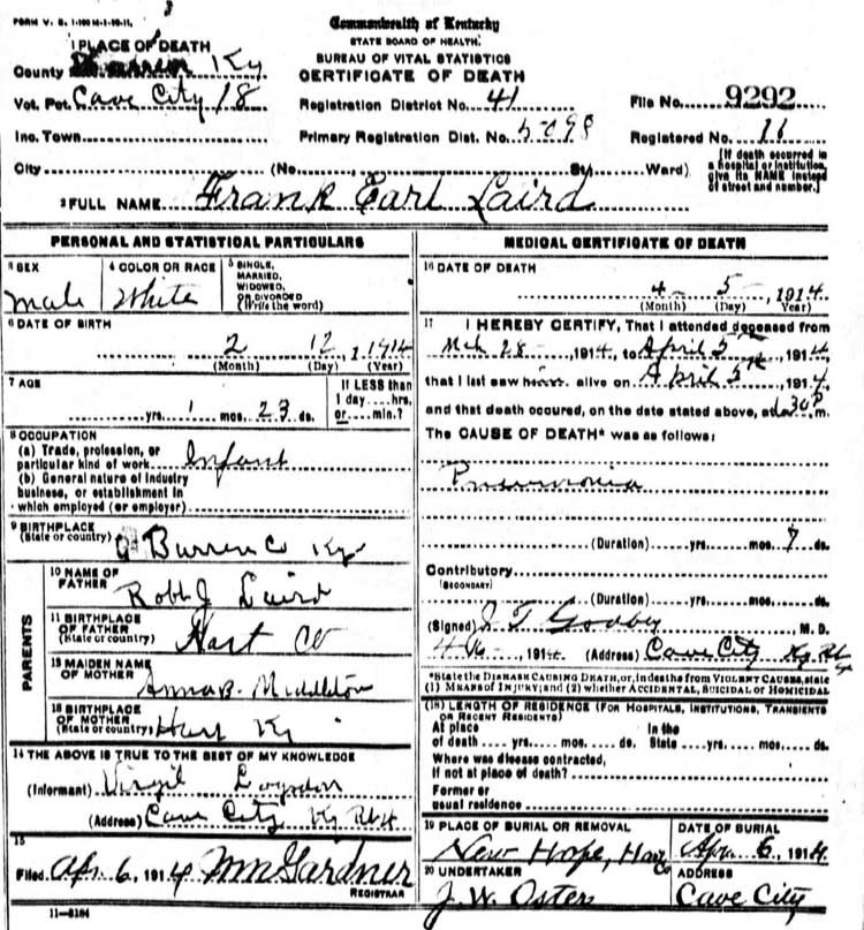 FORM V. S.
Commonwealth of Kentucky
STATE BOARD OF HEALTH.
BUREAU OF VITAL STATISTICS
CERTIFICATE OF DEATH
1 PLACE OF DEATH
County Barren Ky
Vot. Pct. Cave City 18
Registration District No. 41
File No. 9292
Inc. Town
Primary Registration Dist. No. 5098
Registered No. 11
City (No. , St., Ward)
[If death occurred in a hospital or institution, give its NAME instead of street and number.]
2 FULL NAME Frank Earl Laird
PERSONAL AND STATISTICAL PARTICULARS
3 SEX
male
4 COLOR OR RACE
White
5 SINGLE, MARRIED, WIDOWED, OR DIVORCED (Write the word)
6 DATE OF BIRTH
2 12 1914
(Month) (Day) (Year)
7 AGE
yrs. 1 mos. 23 ds.
If LESS than 1 day....hrs, or.....min.?
8 OCCUPATION
(a) Trade, profession, or
particular kind of work Infant
(b) General nature of industry
business, or establishment in
which employed (or employer)
9 BIRTHPLACE
(State or country) Barren Co Ky
PARENTS
10 NAME OF FATHER
Robt J Laird
11 BIRTHPLACE OF FATHER
(State or country) Hart Co
12 MAIDEN NAME OF MOTHER
Anna B. Middleton
13 BIRTHPLACE OF MOTHER
(State or country) Hart Ky
14 THE ABOVE IS TRUE TO THE BEST OF MY KNOWLEDGE
(Informant) Virgil
(Address) Cave City Ky
15
Filed Apr. 6, 1914 Gardner
REGISTRAR
11—8184
MEDICAL CERTIFICATE OF DEATH
16 DATE OF DEATH
4 - 5 - , 1914
(Month) (Day) (Year)
17 I HEREBY CERTIFY, That I attended deceased from
Mch 28 , 1914, to April 5th 1914,
that I last saw him alive on April 5th , 1914,
and that death occured, on the date stated above, at 30 P m.
The CAUSE OF DEATH* was as follows:
Pneumonia
(Duration) yrs. mos. 7 ds.
Contributory
(SECONDARY)
(Duration) yrs. mos. ds.
(Signed) J T , M. D.
, 191 (Address) Cave City Ky
*State the DISEASE CAUSING DEATH, or, in deaths from VIOLENT CAUSES, state
(1) MEANS of INJURY; and (2) whether ACCIDENTAL, SUICIDAL or HOMICIDAL
(18) LENGTH OF RESIDENCE (FOR HOSPITALS, INSTITUTIONS, TRANSIENTS
OR RECENT RESIDENTS)
At place In the
of death .... yrs.... mos. .... ds. State ....yrs. .... mos..... ds.
Where was disease contracted,
if not at place of death?
Former or
usual residence
19 PLACE OF BURIAL OR REMOVAL
New Hope, Hart Co
DATE OF BURIAL
Apr. 6, 1914
20 UNDERTAKER
J. W. Osten
ADDRESS
Cave City